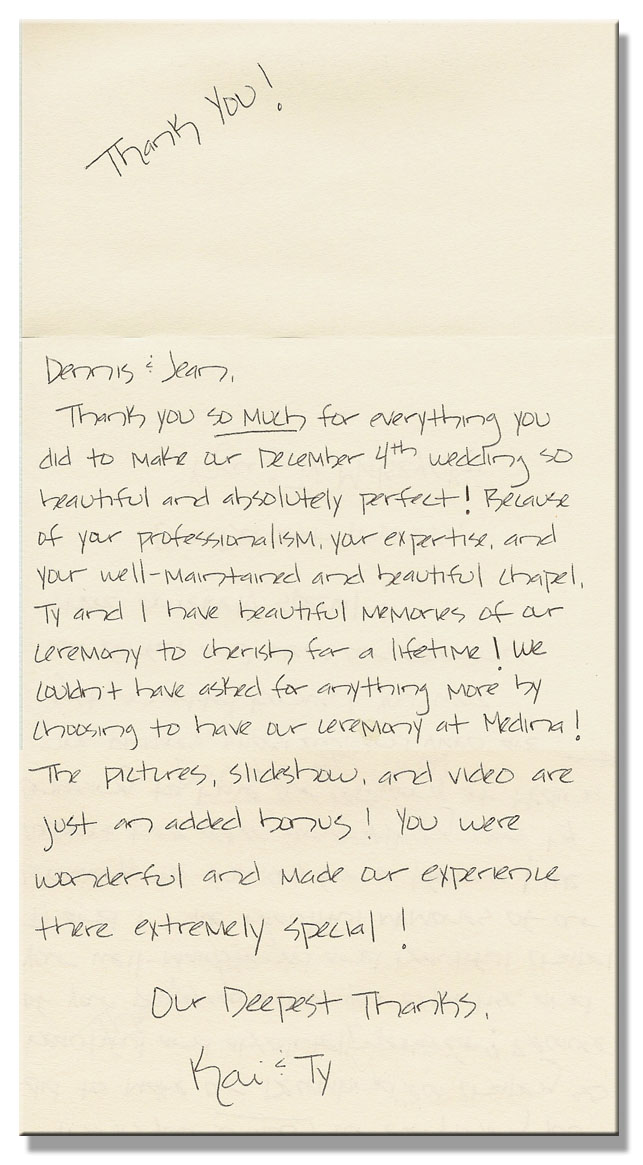 Thank You!
Dennis & Jean,
Thank you so much for everything you
did to make our December 4th wedding so
beautiful and absolutely perfect! Because
of your professionalism, your expertise, and
your well-maintained and beautiful chapel,
Ty and I have beautiful memories of our
ceremony to cherish for a lifetime! We
couldn't have asked for anything more by
choosing to have our ceremony at Medina!
The pictures, slideshow, and video are
just an added bonus! You were
wonderful and made our experience
there extremely special!
Our Deepest Thanks,
Kai & Ty